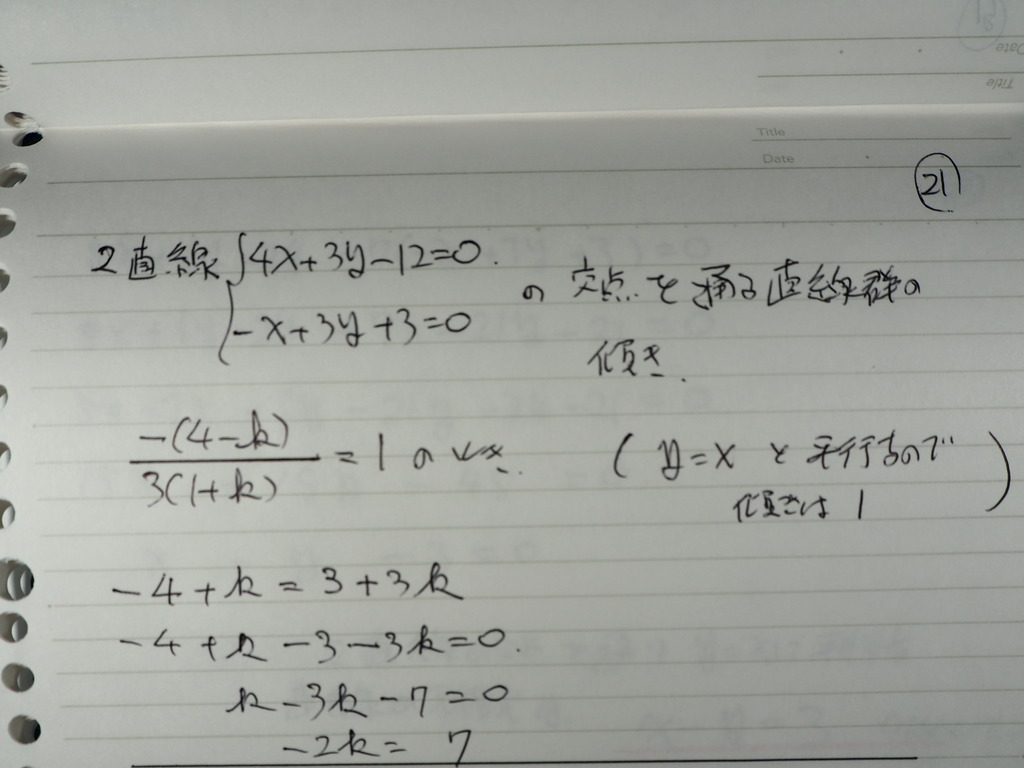 Title
Date
㉑
2直線 { 4x+3y-12=0.
-x+3y+3=0
の 交点を通る直線群の
傾き.
-(4-k)/3(1+k) = 1 のとき. ( y=x と平行なので
傾きは 1 )
-4+k=3+3k
-4+k-3-3k=0.
k-3k-7=0
-2k= 7